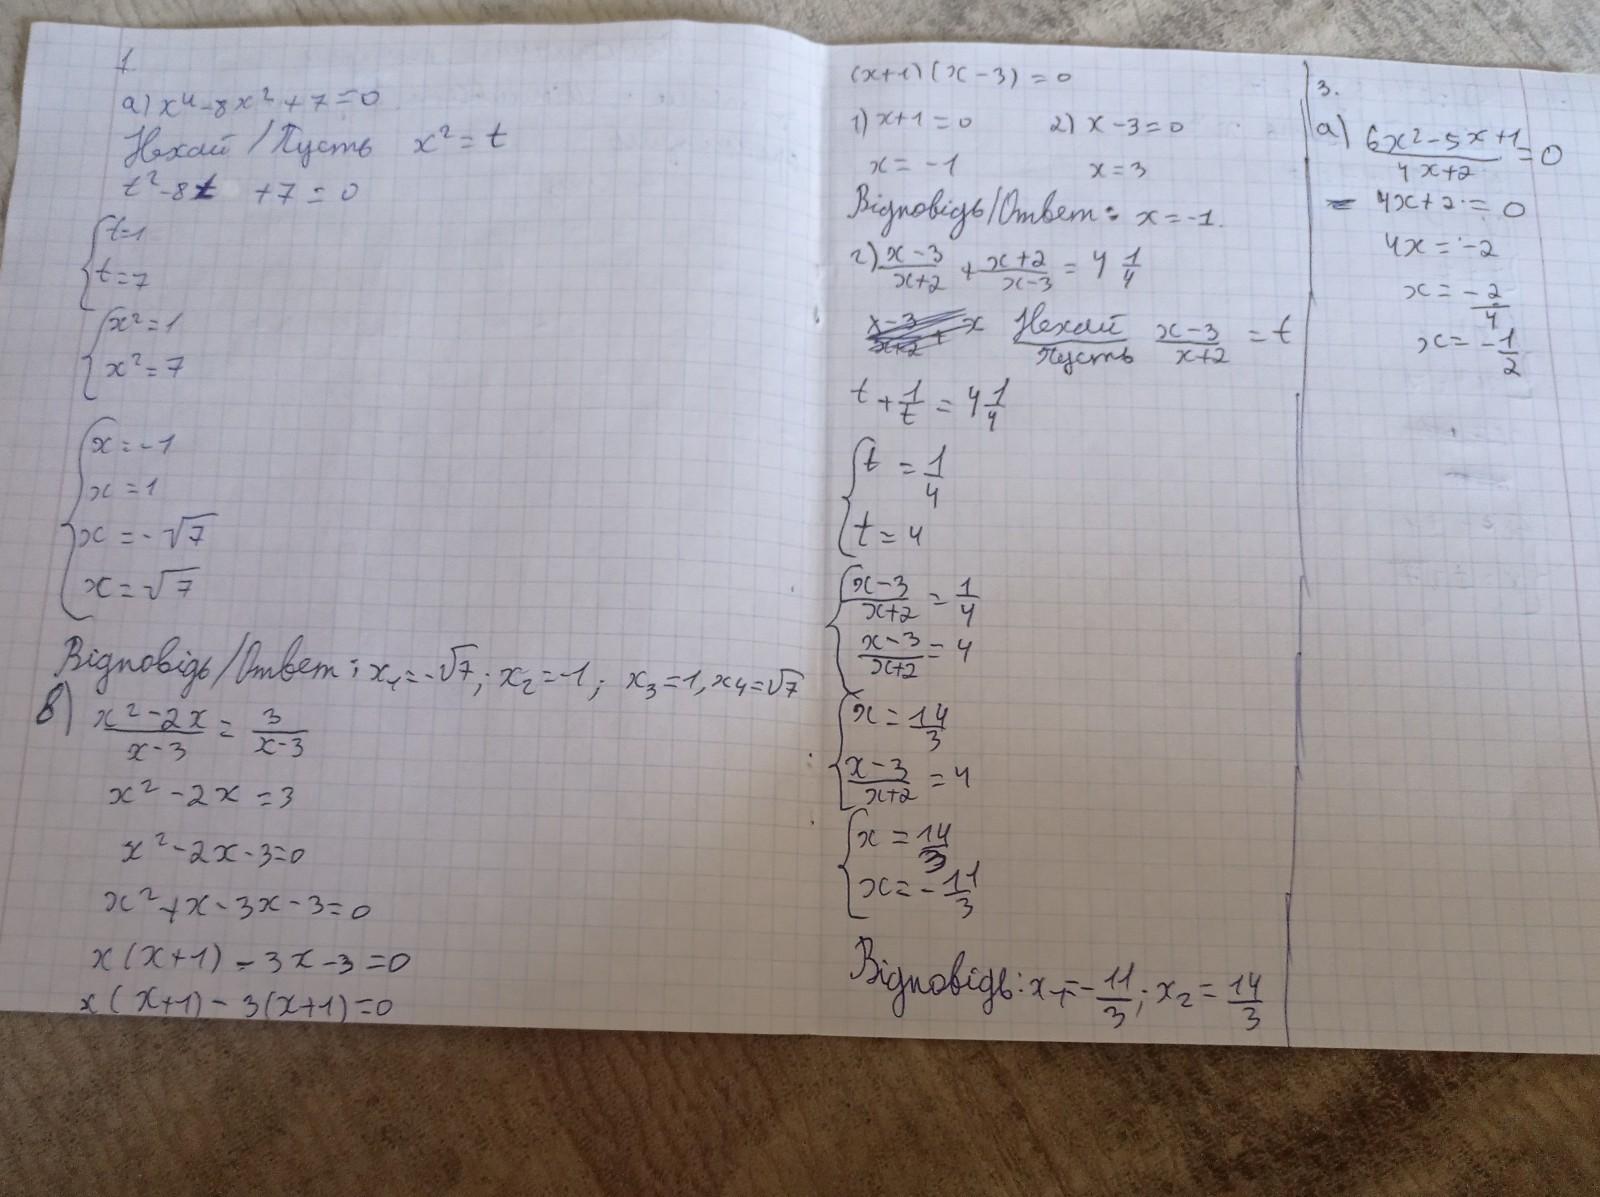 1.
а) x⁴-8x²+7=0
Нехай/Пусть x²=t
t²-8t +7=0
t=1
t=7
x²=1
x²=7
x=-1
x=1
x=-√7
x=√7
Відповідь/Ответ: x₁=-√7; x₂=-1; x₃=1, x₄=√7
в) (x²-2x)/(x-3) = 3/(x-3)
x²-2x=3
x²-2x-3=0
x²+x-3x-3=0
x(x+1)-3x-3=0
x(x+1)-3(x+1)=0
(x+1)(x-3)=0
1) x+1=0 2) x-3=0
x=-1 x=3
Відповідь/Ответ: x=-1.
г) (x-3)/(x+2) + (x+2)/(x-3) = 4 1/4
Нехай/Пусть (x-3)/(x+2) = t
t + 1/t = 4 1/4
t = 1/4
t=4
(x-3)/(x+2) = 1/4
(x-3)/(x+2) = 4
x = 14/3
(x-3)/(x+2) = 4
x = 14/3
x = -11/3
Відповідь: x₁=-11/3; x₂=14/3
3.
а) (6x²-5x+1)/(4x+2) = 0
4x+2=0
4x=-2
x=-2/4
x=-1/2